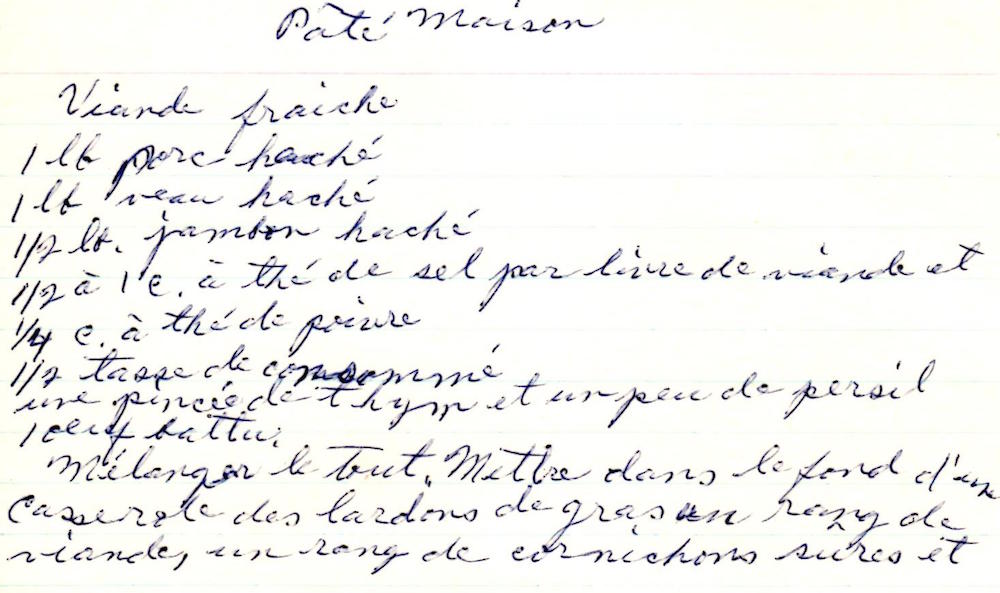 Pâté Maison
Viande fraiche
1 lb porc haché
1 lb veau haché
1/2 lb. jambon haché
1/2 à 1 c. à thé de sel par livre de viande et
1/4 c. à thé de poivre
1/2 tasse de consommé
une pincée de thym et un peu de persil
1 oeuf battu.
Mélanger le tout. Mettre dans le fond d'une
casserole des lardons de gras un rang de
viande, un rang de cornichons sures et